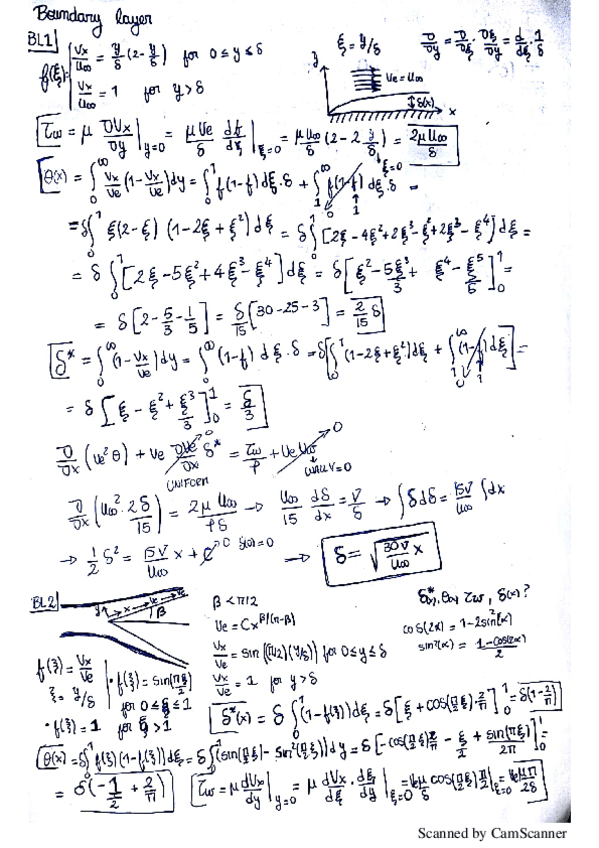 Boundary layer
BL1 f(ξ): { Vx/U∞ = y/δ (2 - y/δ) for 0 ≤ y ≤ δ
Vx/U∞ = 1 for y > δ
ξ = y/δ
∂/∂y = ∂/∂ξ · ∂ξ/∂y = d/dξ · 1/δ
y Ve = U∞ δ(x) x
τw = μ ∂Vx/∂y |y=0 = μ Ve/δ df/dξ |ξ=0 = μ U∞/δ (2 - 2 y/δ) |ξ=0 = 2μ U∞/δ
θ(x) = ∫0^∞ Vx/Ve (1 - Vx/Ve) dy = ∫0^1 f(1-f) dξ · δ + ∫1^∞ f(1-f) dξ · δ =
= δ ∫0^1 ξ(2-ξ) (1 - 2ξ + ξ²) dξ = δ ∫0^1 [2ξ - 4ξ² + 2ξ³ - ξ² + 2ξ³ - ξ⁴] dξ =
= δ ∫0^1 [2ξ - 5ξ² + 4ξ³ - ξ⁴] dξ = δ [ξ² - 5ξ³/3 + ξ⁴ - ξ⁵/5]0^1 =
= δ [2 - 5/3 - 1/5] = δ/15 [30 - 25 - 3] = 2/15 δ
δ* = ∫0^∞ (1 - Vx/Ve) dy = ∫0^∞ (1-f) dξ · δ = δ [∫0^1 (1 - 2ξ + ξ²) dξ + ∫1^∞ (1-f) dξ] =
= δ [ξ - ξ² + ξ³/3]0^1 = δ/3
∂/∂x (Ve² θ) + Ve ∂Ve/∂x δ* = τw/ρ + Ve Vw 0
UNIFORM WALL V=0
∂/∂x (U∞² · 2δ/15) = 2μ U∞/ρδ → U∞/15 dδ/dx = ν/δ → ∫ δ dδ = 15ν/U∞ ∫ dx
→ 1/2 δ² = 15ν/U∞ x + C 0 δ(0)=0 → δ = √(30ν/U∞ x)
BL2 y x Ve Ve β
β < π/2
Ve = Cx^β/(π-β)
Vx/Ve = sin((π/2)(y/δ)) for 0 ≤ y ≤ δ
Vx/Ve = 1 for y > δ
τw, δ(x)?
cos(2α) = 1 - 2sin²(α)
sin²(α) = 1 - cos(2α)/2
f(ξ) = Vx/Ve
ξ = y/δ
· f(ξ) = sin(πξ/2) for 0 ≤ ξ ≤ 1
· f(ξ) = 1 for ξ > 1
δ*(x) = δ ∫0^1 (1 - f(ξ)) dξ = δ [ξ + cos(π/2 ξ) 2/π]0^1 = δ(1 - 2/π)
θ(x) = δ ∫0^1 f(ξ)(1 - f(ξ)) dξ = δ ∫0^1 (sin(π/2 ξ) - sin²(π/2 ξ)) dy = δ [-cos(π/2 ξ) 2/π - ξ/2 + sin(πξ)/2π]0^1 =
= δ(-1/2 + 2/π)
τw = μ dVx/dy |y=0 = μ dVx/dξ · dξ/dy |ξ=0 = Ve μ/δ cos(π/2 ξ) π/2 |ξ=0 = Ve μ π/2δ
Scanned by CamScanner